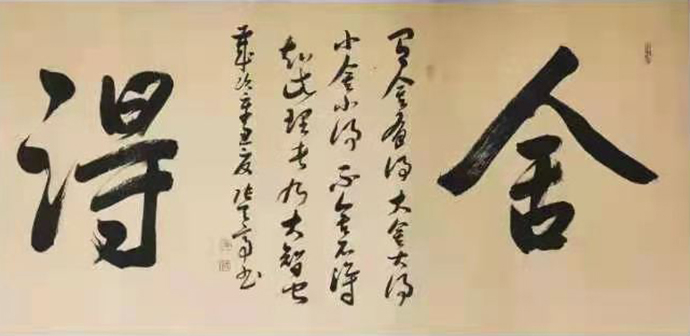 舍
有舍有得大舍大得
小舍小得不舍不得
知此理者乃大智也
歲次辛丑夏張書
得